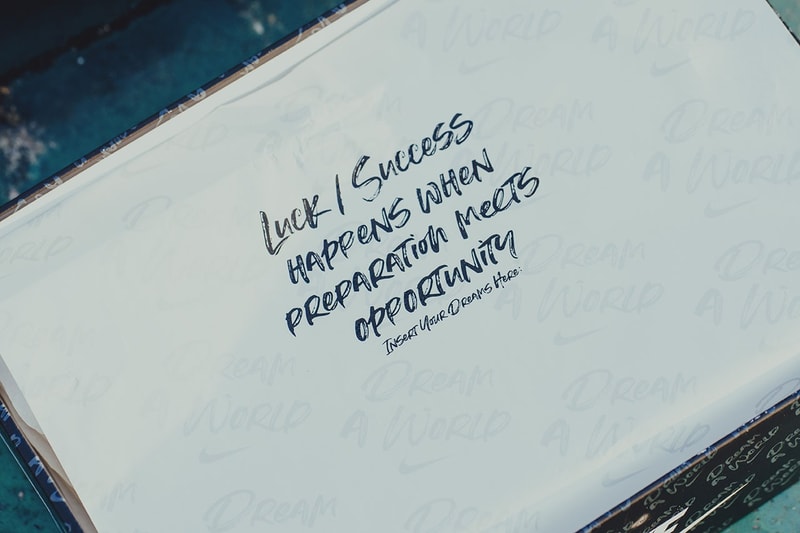 Luck / Success
HAPPENS WHEN
PREPARATION MEETS
OPPORTUNITY
INSERT YOUR DREAMS HERE:
DREAM
A WORLD
DREAM
A WORLD
DREAM
A WORLD
DREAM
A WORLD
DREAM
A WORLD
DREAM
A WORLD
DREAM
A WORLD
DREAM
DREAM
A WORLD